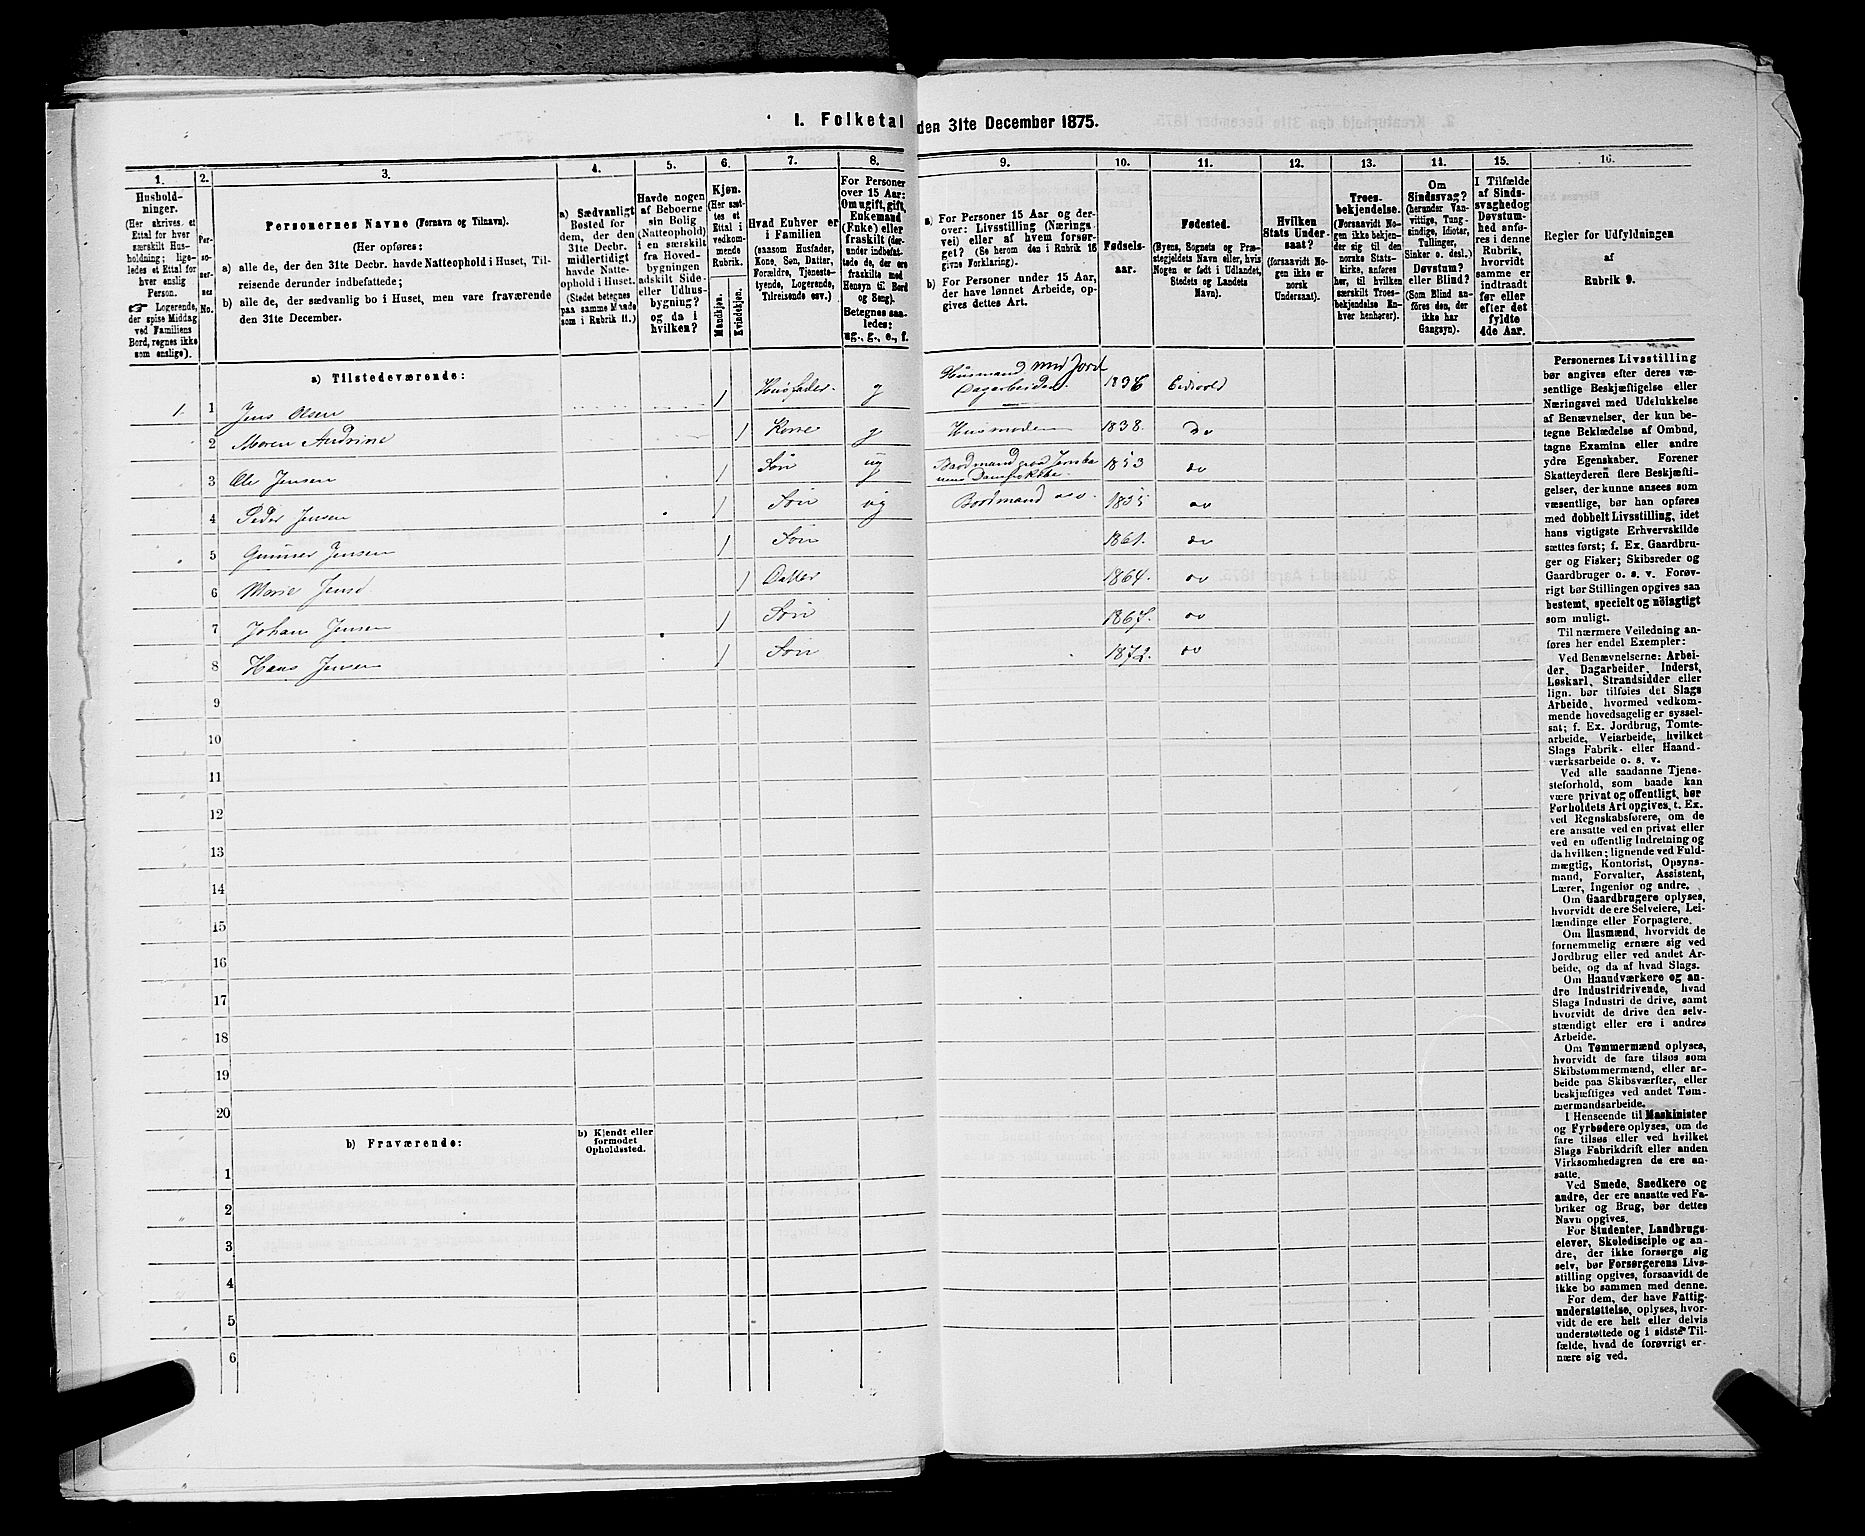 I. Folketal den 31te December 1875.
1.
2.
3.
4.
5.
6.
7.
8.
9.
10.
11.
12.
13.
14.
15.
16.
Hushold-
ninger.
(Her skrives et
Ettal for hver
særskilt Hus-
holdning; lige-
ledes et Ettal for
hver enslig
Person.
☞ Logerende,
der spise Middag
ved Familiens
Bord, regnes ikke
som enslige).
Per-
so-
ner-
nes
No.
Personernes Navne (Fornavn og Tilnavn).
(Her opføres:
a) alle de, der den 31te Decbr. havde Natteophold i Huset, Til-
reisende derunder indbefattede;
b) alle de, der sædvanlig bo i Huset, men vare fraværende
den 31te December.
a) Sædvanligt
Bosted for
dem, der den
31te Decbr.
midlertidigt
havde Natte-
ophold i Huset.
(Stedet betegnes
paa samme Maade
som i Rubrik 11.)
Havde nogen
af Beboerne
sin Bolig
(Natteophold)
i en særskilt
fra Hoved-
bygningen
adskilt Side-
eller Udhus-
bygning?
og da i
hvilken?
Kjøn.
(Her sæt-
tes et
Ettal i
vedkom-
mende
Rubrik.
Mandkjøn.
Kvindekjøn.
Hvad Enhver er
i Familien
(saasom Husfader,
Kone, Søn, Datter,
Forældre, Tjeneste-
tyende, Logerende,
Tilreisende osv.)
For Personer
over 15 Aar:
Om ugift, gift,
Enkemand
(Enke) eller
fraskilt (der-
under indbefat-
tede de, der ere
fraskilte med
Hensyn til Bord
og Seng).
Betegnes saa-
ledes:
ug., g., e., f.
a) For Personer 15 Aar og der-
over: Livsstilling (Nærings-
vei) eller af hvem forsør-
get? (Se herom den i Rubrik 16
givne Forklaring).
b) For Personer under 15 Aar,
der have lønnet Arbeide, op-
gives dettes Art.
Fødsels-
aar.
Fødested.
(Byens, Sognets og Præ-
stegjeldets Navn eller, hvis
Nogen er født i Udlandet,
Stedets og Landets
Navn).
Hvilken
Stats Under-
saat?
(forsaavidt No-
gen ikke er
norsk
Undersaat).
Troes-
bekjendelse.
(Forsaavidt No-
gen ikke bekjen-
der sig til den
norske Stats-
kirke, anføres
her, til hvilken
særskilt Troes-
bekjendelse En-
hver henhører).
Om
Sindssvag?
(herunder Van-
vittige, Tung-
sindige, Idioter,
Tullinger,
Sinker o. desl.)
Døvstum?
eller Blind?
(Som Blind an-
føres den, der
ikke har
Gangsyn).
I Tilfælde
af Sinds-
svaghed og
Døvstum-
hed anfø-
res i denne
Rubrik,
hvorvidt
samme er
indtraadt
før eller
efter det
fyldte
4de Aar.
Regler for Udfyldningen
af
Rubrik 9.
a) Tilstedeværende:
1. 1 Jens Olsen 1 Husfader g Husmand med Jord Dagarbeider 1836 Eidsvold
2 Maren Andrine 1 Kone g Husmoder 1838. do
3 Ole Jensen 1 Søn ug 1853 do
4 Peder Jensen 1 Søn ug 1855 do
5 Gunner Jensen 1 Søn 1861. do
6 Marie Jensd 1 Datter 1864. do
7 Johan Jensen 1 Søn 1867. do
8 Hans Jensen 1 Søn 1872. do
9
10
11
12
13
14
15
16
17
18
19
20
b) Fraværende:
b) Kjendt eller
formodet
Opholdssted.
1
2
3
4
5
6
Personernes Livsstilling
bør angives efter deres væ-
sentlige Beskjæftigelse eller
Næringsvei med Udelukkelse
af Benævnelser, der kun be-
tegne Beklædelse af Ombud,
tagne Examina eller andre
ydre Egenskaber. Forener
Skatteyderen flere Beskjæfti-
gelser, der kunne ansees som
væsentlige, bør han opføres
med dobbelt Livsstilling, idet
hans vigtigste Erhvervskilde
sættes først; f. Ex. Gaardbru-
ger og Fisker; Skibsreder og
Gaardbruger o. s. v. Forøv-
rigt bør Stillingen opgives saa
bestemt, specielt og nöiagtigt
som muligt.
Til nærmere Veiledning an-
føres her endel Exempler:
Ved Benævnelserne: Arbei-
der, Dagarbeider, Inderst,
Løskarl, Strandsidder eller
lign. bør tilføies det Slags
Arbeide, hvormed vedkom-
mende hovedsagelig er syssel-
sat; f. Ex. Jordbrug, Tomte-
arbeide, Veiarbeide, hvilket
Slags Fabrik- eller Haand-
værksarbeide o. s. v.
Ved alle saadanne Tjene-
steforhold, som baade kan
være privat og offentligt, bør
Forholdets Art opgives, t. Ex.
ved Regnskabsførere, om de
ere ansatte ved en privat eller
ved en offentlig Indretning og
da hvilken; lignende ved Fuld-
mægtig, Kontorist, Opsyns-
mand, Forvalter, Assistent,
Lærer, Ingeniør og andre.
Om Gaardbrugere oplyses,
hvorvidt de ere Selveiere, Lei-
lændinge eller Forpagtere.
Om Husmænd, hvorvidt de
fornemmelig ernære sig ved
Jordbrug eller ved andet Ar-
beide, og da af hvad Slags.
Om Haandværkere og an-
dre Industridrivende, hvad
Slags Industri de drive, samt
hvorvidt de drive den selv-
stændigt eller ere i andres
Arbeide.
Om Tømmermænd oplyses,
hvorvidt de fare tilsøs som
Skibstømmermænd, eller ar-
beide paa Skibsværfter, eller
beskjæftiges ved andet Tøm-
mermandsarbeide.
I Henseende til Maskinister
og Fyrbødere oplyses, om de
fare tilsøs eller ved hvilket
Slags Fabrikdrift eller anden
Virksomhedsgren de ere an-
satte.
Ved Smede, Snedkere og
andre, der ere ansatte ved Fa-
briker og Brug, bør dettes
Navn opgives.
For Studenter, Landbrugs-
elever, Skoledisciple og an-
dre, der ikke forsørge sig
selv, bør Forsørgerens Livs-
stilling opgives, forsaavidt de
ikke bo sammen med denne.
For dem, der have Fattig-
understøttelse, oplyses, hvor-
vidt de ere helt eller delvis
understøttede og i sidste Til-
fælde, hvad de forøvrigt er-
nære sig ved.